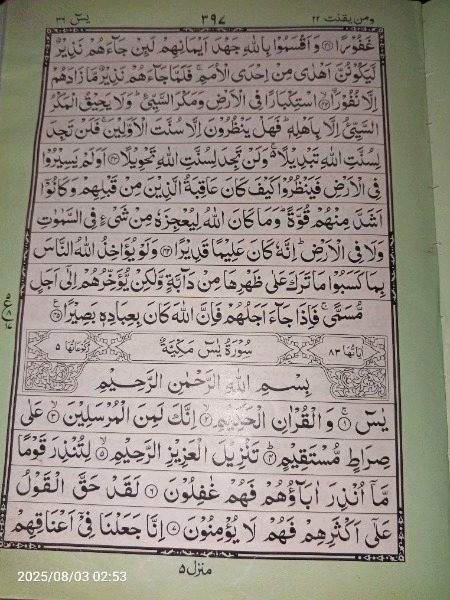 ومن يقنت ٢٢ ٣٩٧ يٰسٓ ٣٦
غَفُوْرًا ﴿۴۱﴾ وَاَقْسَمُوْا بِاللّٰهِ جَهْدَ اَيْمَانِهِمْ لَئِنْ جَآءَهُمْ نَذِيْرٌ
لَّيَكُوْنُنَّ اَهْدٰى مِنْ اِحْدَى الْاُمَمِ ۚ فَلَمَّا جَآءَهُمْ نَذِيْرٌ مَّا زَادَهُمْ
اِلَّا نُفُوْرًا ﴿۴۲﴾ اسْتِكْبَارًا فِى الْاَرْضِ وَمَكْرَ السَّيِّئِ ؕ وَلَا يَحِيْقُ الْمَكْرُ
السَّيِّئُ اِلَّا بِاَهْلِهٖ ؕ فَهَلْ يَنْظُرُوْنَ اِلَّا سُنَّتَ الْاَوَّلِيْنَ ۚ فَلَنْ تَجِدَ
لِسُنَّتِ اللّٰهِ تَبْدِيْلًا ۚ۬ وَلَنْ تَجِدَ لِسُنَّتِ اللّٰهِ تَحْوِيْلًا ﴿۴۳﴾ اَوَلَمْ يَسِيْرُوْا
فِى الْاَرْضِ فَيَنْظُرُوْا كَيْفَ كَانَ عَاقِبَةُ الَّذِيْنَ مِنْ قَبْلِهِمْ وَكَانُوْۤا
اَشَدَّ مِنْهُمْ قُوَّةً ؕ وَمَا كَانَ اللّٰهُ لِيُعْجِزَهٗ مِنْ شَىْءٍ فِى السَّمٰوٰتِ
وَلَا فِى الْاَرْضِ ؕ اِنَّهٗ كَانَ عَلِيْمًا قَدِيْرًا ﴿۴۴﴾ وَلَوْ يُؤَاخِذُ اللّٰهُ النَّاسَ
بِمَا كَسَبُوْا مَا تَرَكَ عَلٰى ظَهْرِهَا مِنْ دَآبَّةٍ وَّلٰكِنْ يُّؤَخِّرُهُمْ اِلٰٓى اَجَلٍ
مُّسَمًّى ۚ فَاِذَا جَآءَ اَجَلُهُمْ فَاِنَّ اللّٰهَ كَانَ بِعِبَادِهٖ بَصِيْرًا ﴿۴۵﴾
اٰيَاتُهَا ٨٣ سُوْرَةُ يٰسٓ مَكِّيَّةٌ رُكُوْعَاتُهَا ٥
بِسْمِ اللّٰهِ الرَّحْمٰنِ الرَّحِيْمِ
يٰسٓ ﴿۱﴾ وَالْقُرْاٰنِ الْحَكِيْمِ ﴿۲﴾ اِنَّكَ لَمِنَ الْمُرْسَلِيْنَ ﴿۳﴾ عَلٰى
صِرَاطٍ مُّسْتَقِيْمٍ ﴿۴﴾ تَنْزِيْلَ الْعَزِيْزِ الرَّحِيْمِ ﴿۵﴾ لِتُنْذِرَ قَوْمًا
مَّاۤ اُنْذِرَ اٰبَآؤُهُمْ فَهُمْ غٰفِلُوْنَ ﴿۶﴾ لَقَدْ حَقَّ الْقَوْلُ
عَلٰٓى اَكْثَرِهِمْ فَهُمْ لَا يُؤْمِنُوْنَ ﴿۷﴾ اِنَّا جَعَلْنَا فِىْۤ اَعْنَاقِهِمْ
منزل ٥
2025/08/03 02:53